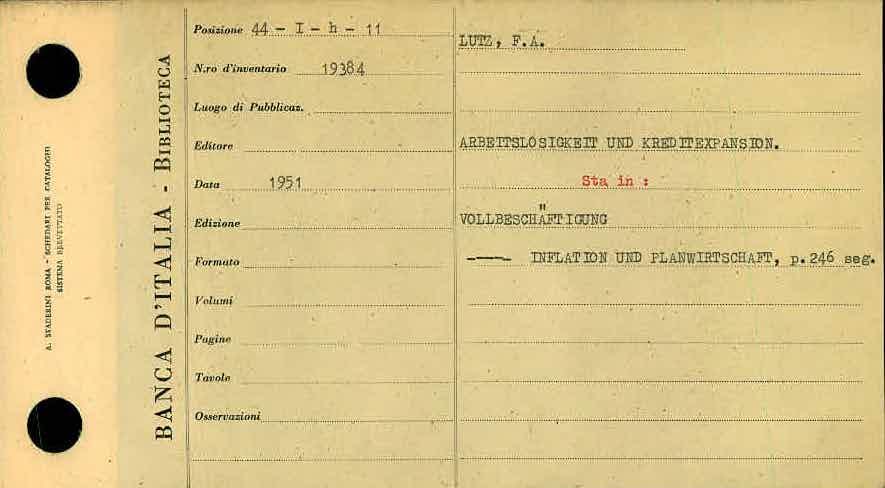 A. STADERINI ROMA - SCHEDARI PER CATALOGHI
SISTEMA BREVETTATO
BANCA D'ITALIA - BIBLIOTECA
Posizione 44 - I - h - 11
N.ro d'inventario 19384
Luogo di Pubblicaz.
Editore
Data 1951
Edizione
Formato
Volumi
Pagine
Tavole
Osservazioni
LUTZ, F.A.
ARBEITSLOSIGKEIT UND KREDITEXPANSION.
Sta in :
VOLLBESCHÄFTIGUNG
——— INFLATION UND PLANWIRTSCHAFT, p.246 seg.